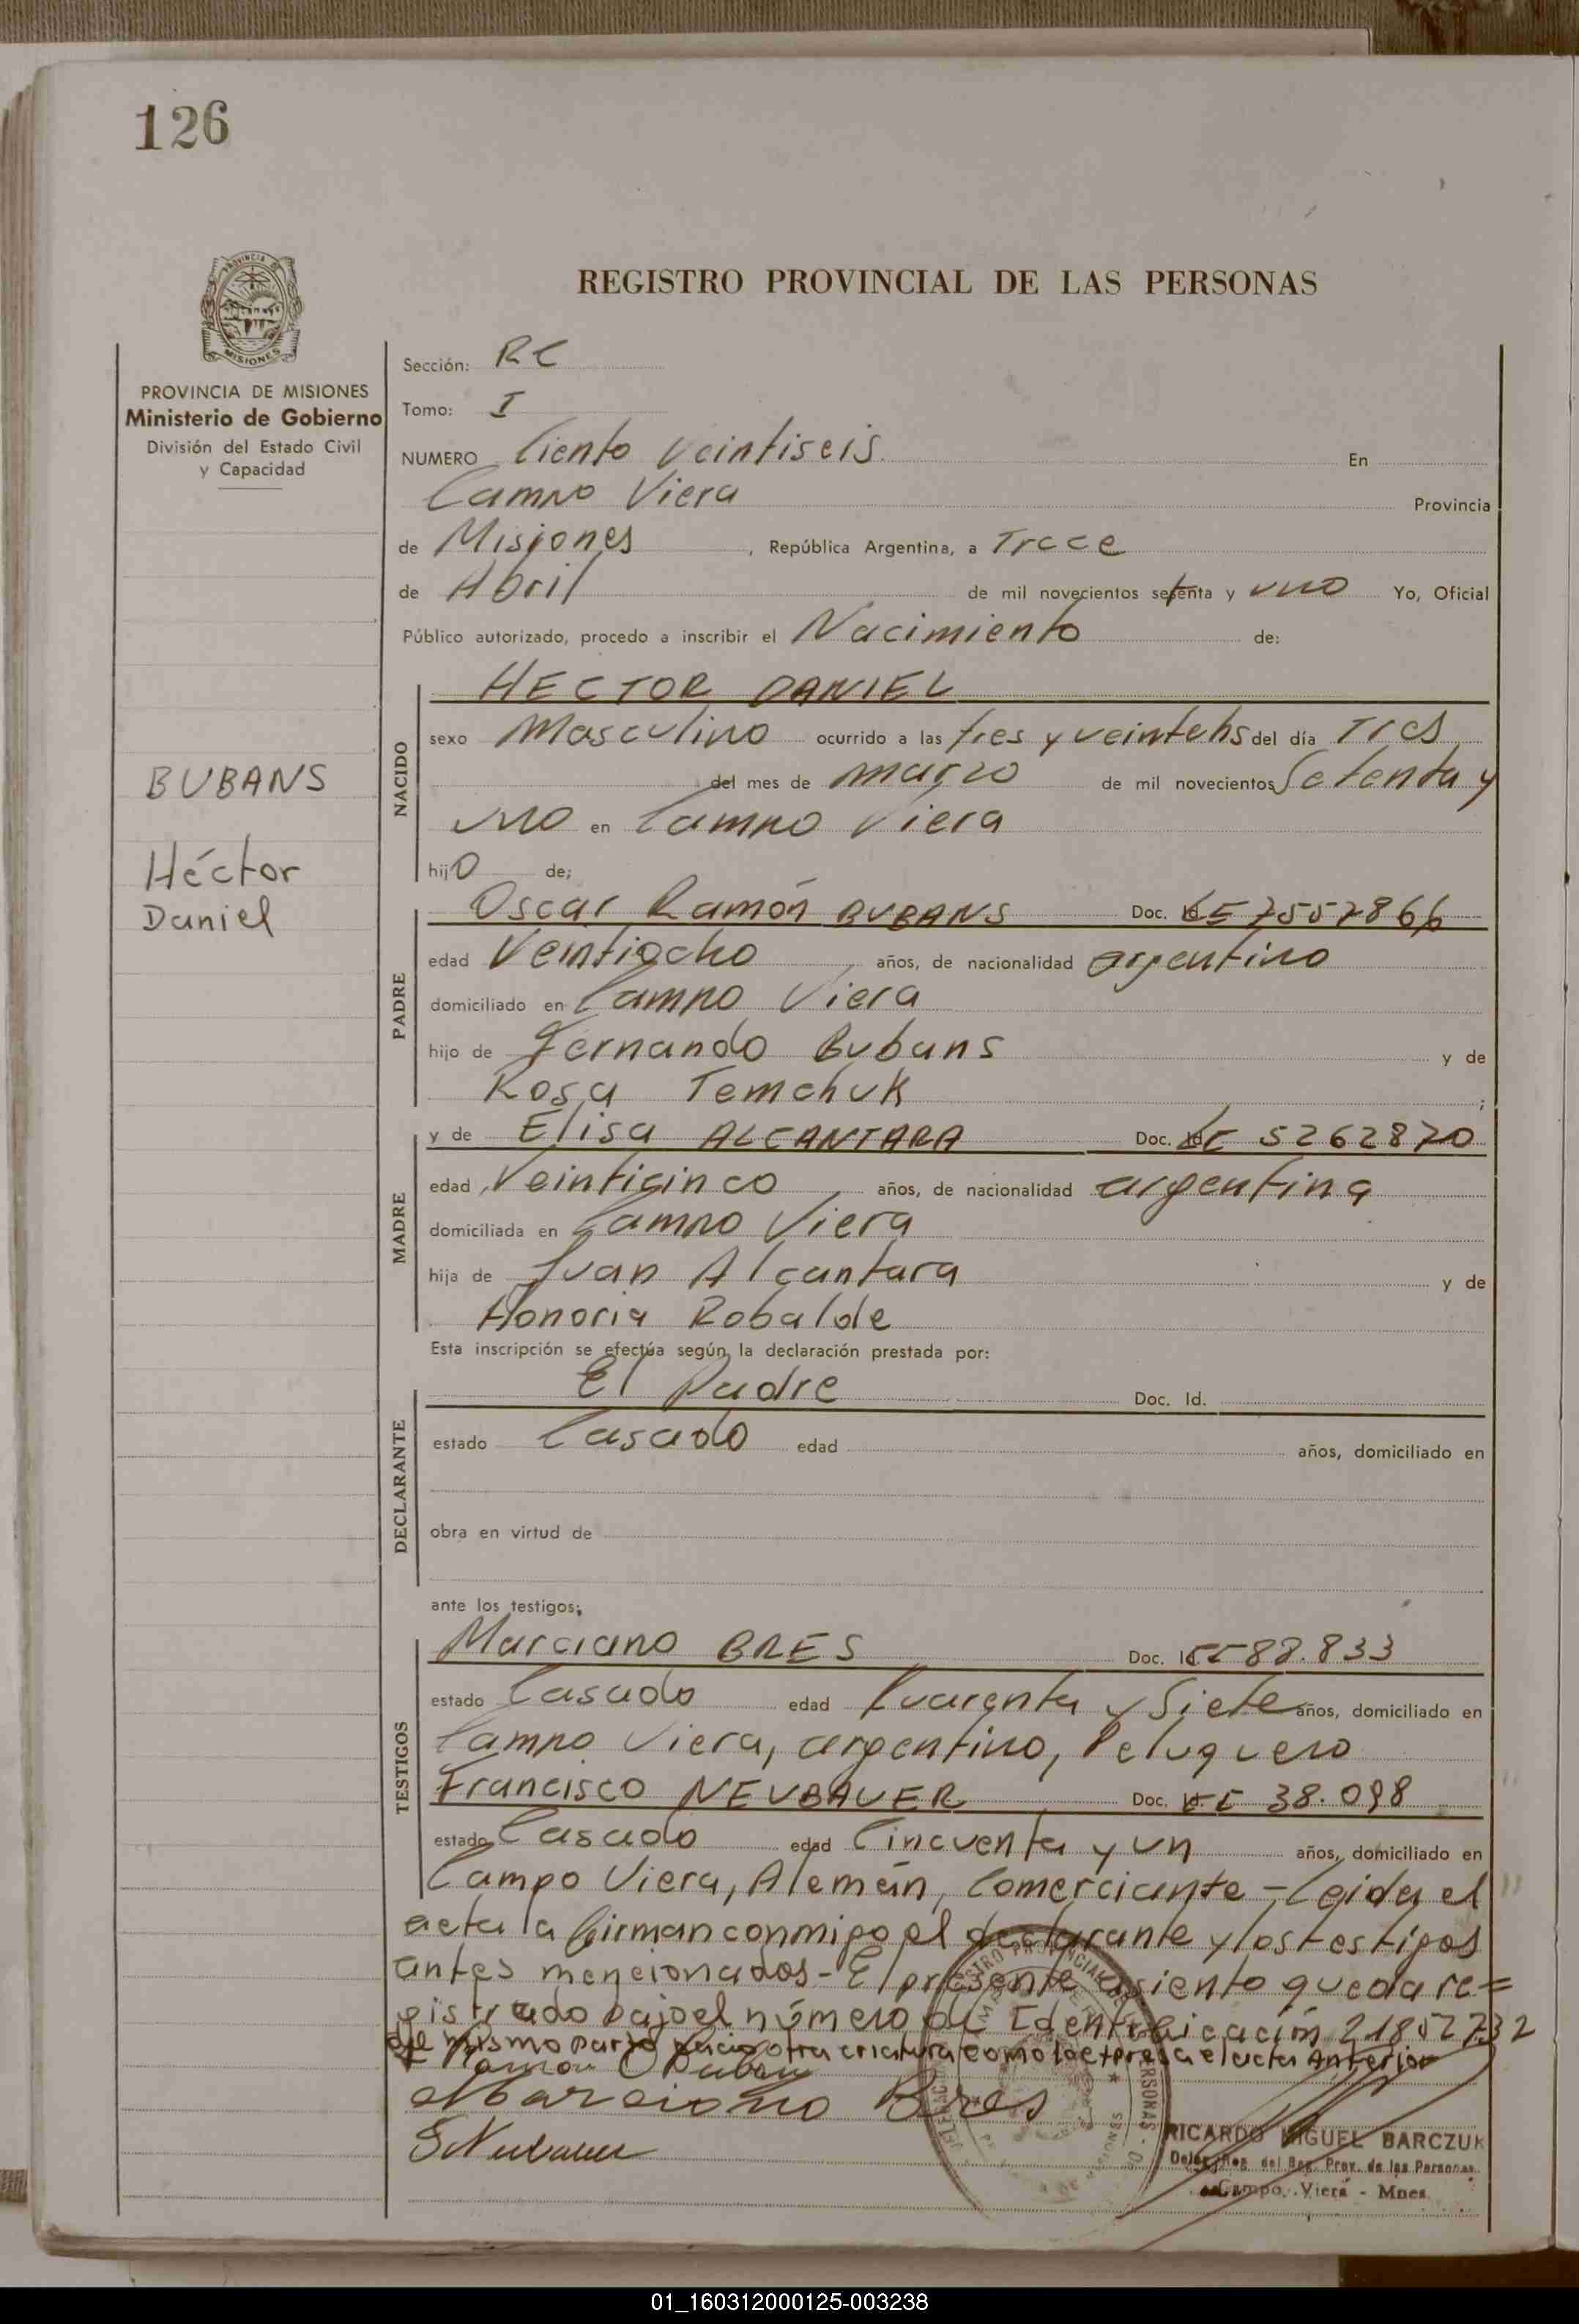 126
PROVINCIA DE MISIONES
Ministerio de Gobierno
División del Estado Civil
y Capacidad
BUBANS
Héctor
Daniel
REGISTRO PROVINCIAL DE LAS PERSONAS
Sección: RC
Tomo: I
NUMERO Ciento Veintiseis En
Campo Viera Provincia
de Misiones, República Argentina, a Trece
de Abril de mil novecientos setenta y uno Yo, Oficial
Público autorizado, procedo a inscribir el Nacimiento de:
NACIDO
HECTOR DANIEL
sexo Masculino ocurrido a las tres y veinte hs del día Tres
del mes de marzo de mil novecientos Setenta y
uno en Campo Viera
hijo de;
PADRE
Oscar Ramón BUBANS Doc. LE 7557866
edad Veintiocho años, de nacionalidad argentino
domiciliado en Campo Viera
hijo de Fernando Bubans y de
Rosa Temchuk;
MADRE
y de Elisa ALCANTARA Doc. 5262870
edad Veinticinco años, de nacionalidad argentina
domiciliada en Campo Viera
hija de Juan Alcantara y de
Honoria Robalde
Esta inscripción se efectúa según la declaración prestada por:
DECLARANTE
El Padre Doc. Id.
estado Casado edad años, domiciliado en
obra en virtud de
ante los testigos;
TESTIGOS
Marciano BRES Doc. 88.833
estado Casado edad Cuarenta y Siete años, domiciliado en
Campo Viera, argentino, Peluquero
Francisco NEUBAUER Doc. 38.098
estado Casado edad Cincuenta y un años, domiciliado en
Campo Viera, Alemán, Comerciante - Leida el
acta la firman conmigo el declarante y los testigos
antes mencionados - El presente asiento queda re=
gistrado bajo el número de Identificación 21857732
del mismo parto nació otra criatura como lo expresa el acta Anterior
Marciano Bres
RICARDO MIGUEL BARCZUK
del Reg. Prov. de las Personas
Campo Viera - Mnes
01_160312000125-003238